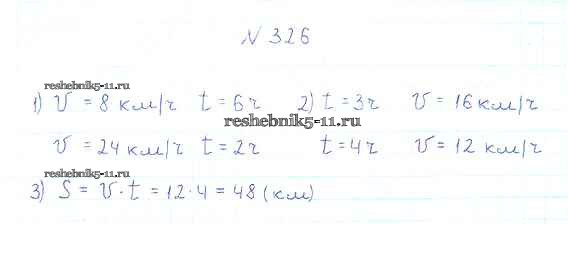 N 326
reshebnik5-11.ru
1) v = 8 км/ч t = 6ч 2) t = 3ч v = 16 км/ч
reshebnik5-11.ru
v = 24 км/ч t = 2ч t = 4ч v = 12 км/ч
reshebnik5-11.ru
3) S = v · t = 12 · 4 = 48 (км)